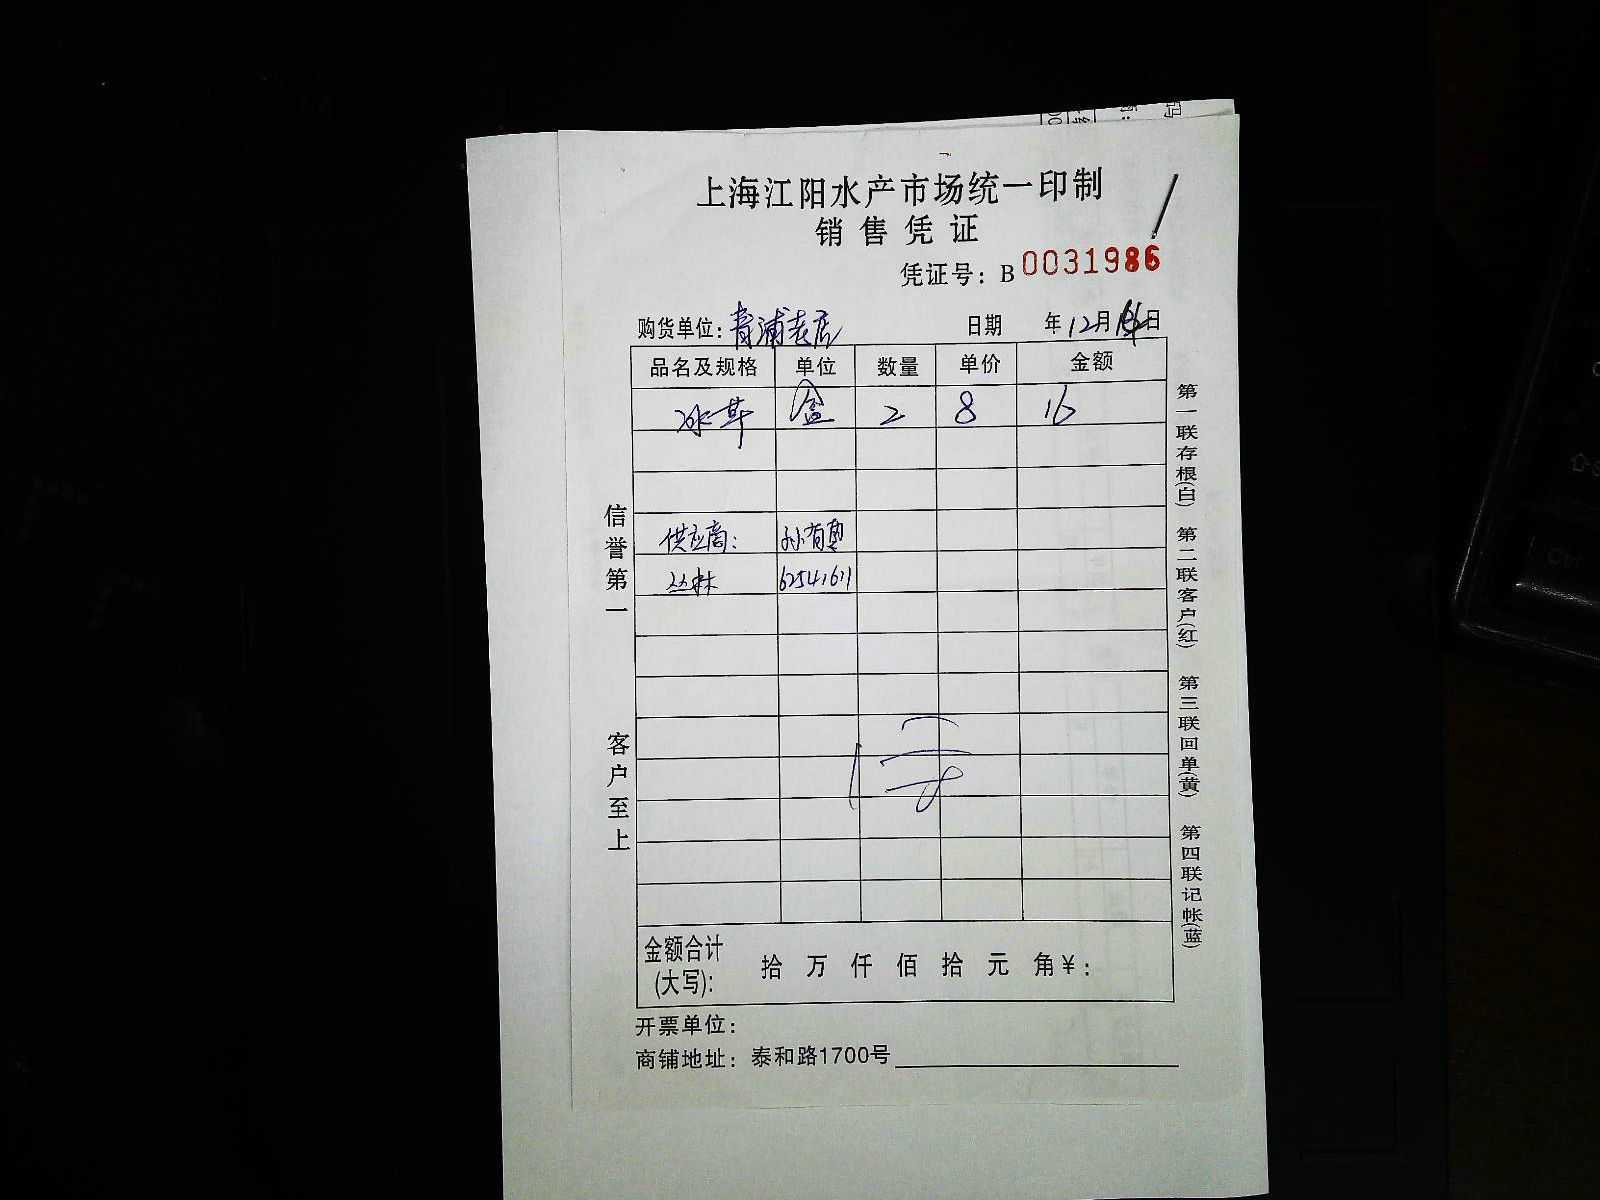 上海江阳水产市场统一印制
销售凭证
凭证号：B 0031986
购货单位：青浦老店 日期 年12月 日
品名及规格 单位 数量 单价 金额
冰草 盒 2 8 16
供应商： 孙有
丛林 62541611
信誉第一
客户至上
第一联存根(白)
第二联客户(红)
第三联回单(黄)
第四联记帐(蓝)
金额合计(大写)： 拾 万 仟 佰 拾 元 角￥：
开票单位：
商铺地址：泰和路1700号